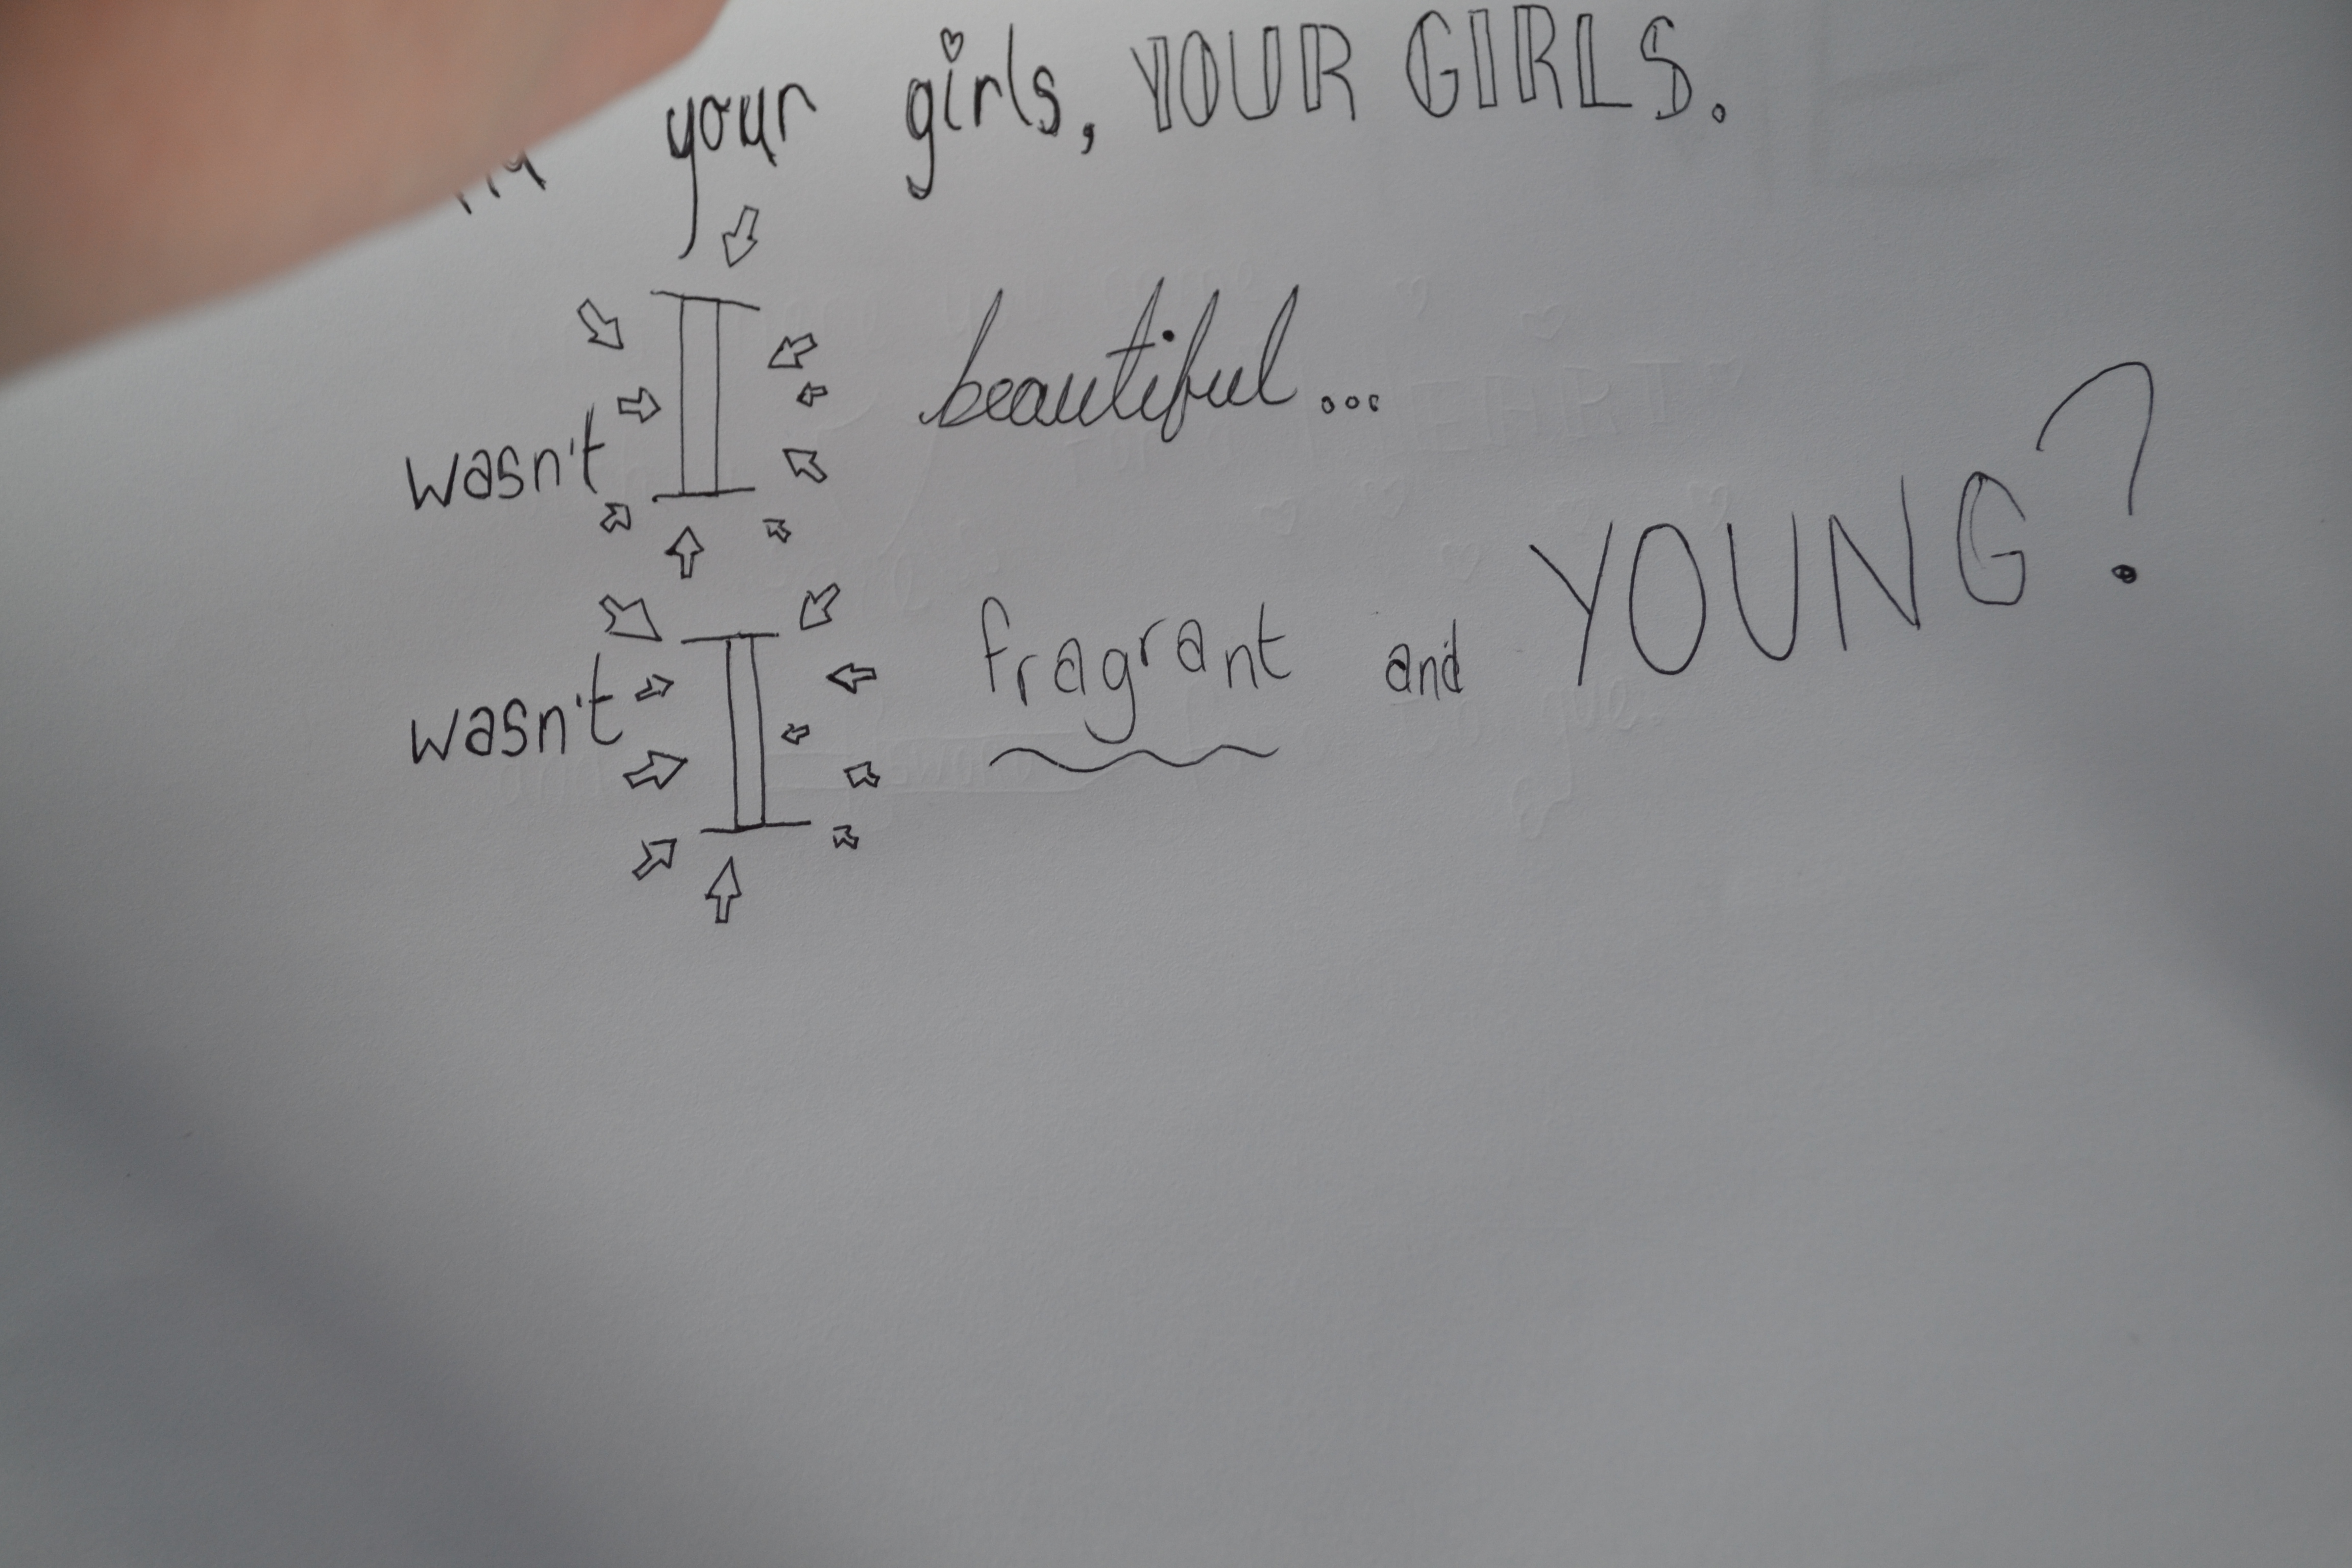 your girls, YOUR GIRLS.
wasn't I beautiful...
wasn't I fragrant and YOUNG?